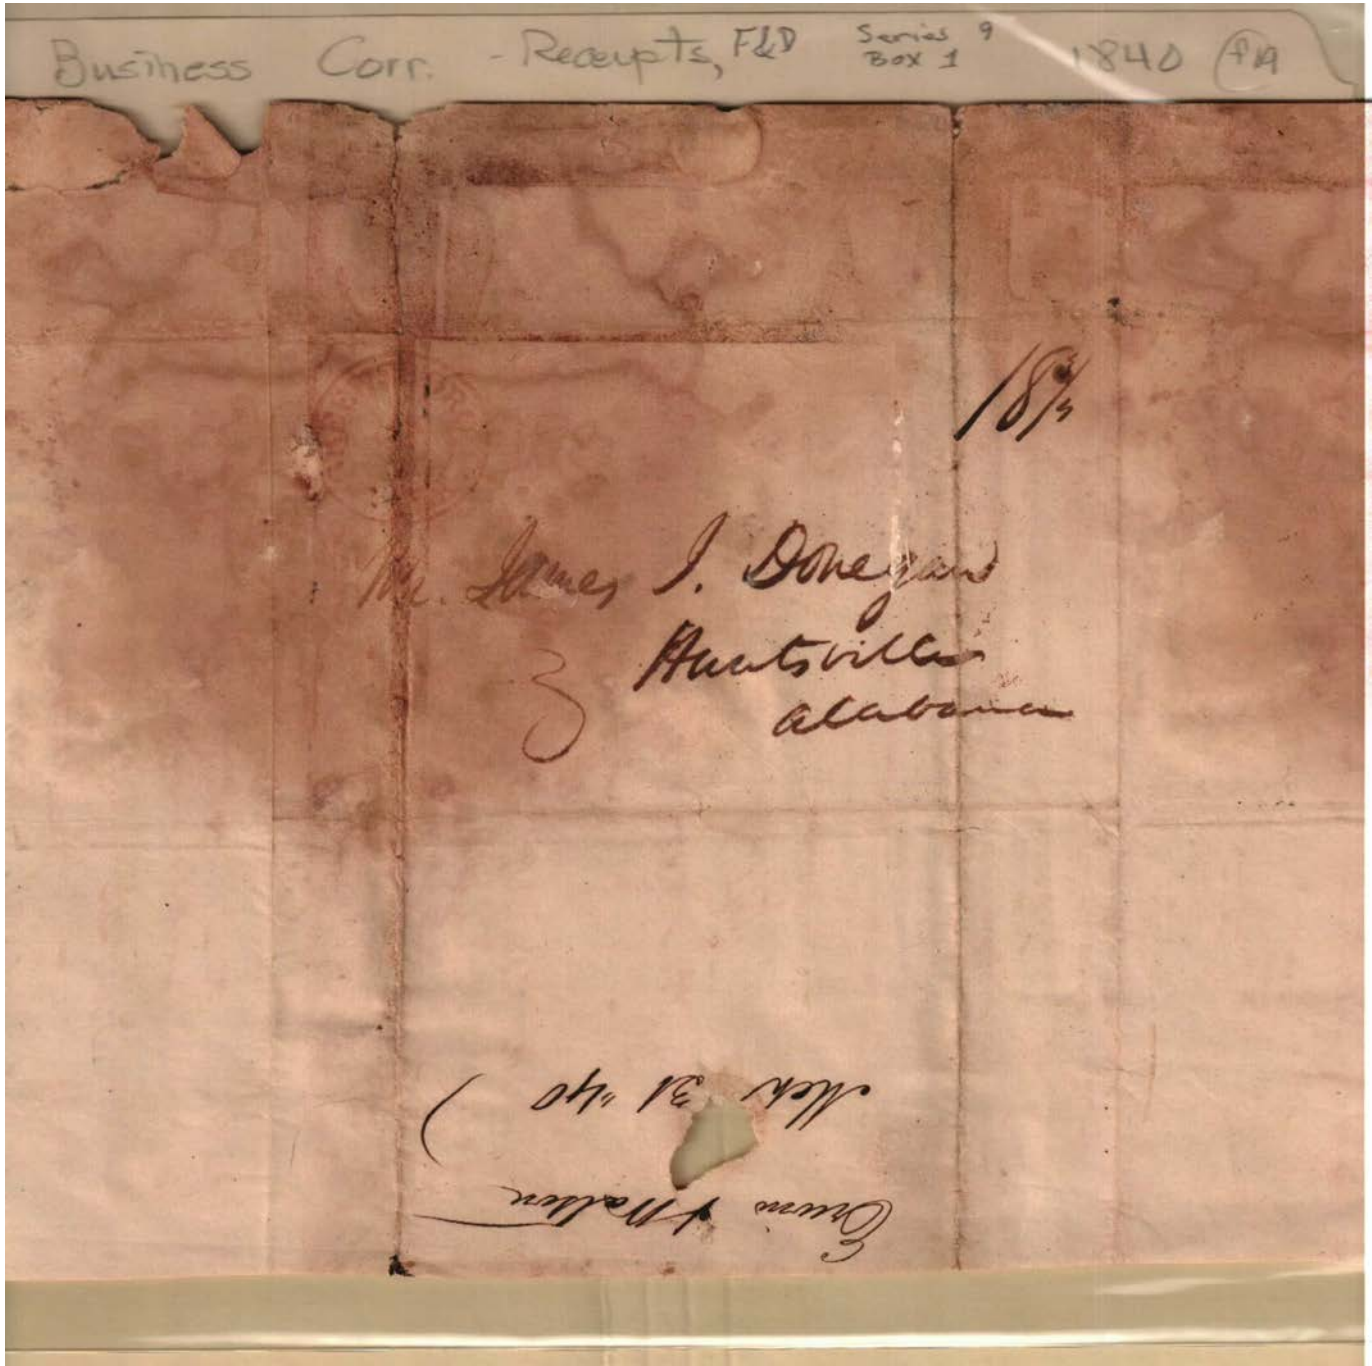 Business Corr. - Receipts, F&D Series 9 Box 1 1840
18 3/4
Mr. James J. Donegan
Huntsville
Alabama
Mch 31 "40
& Watson